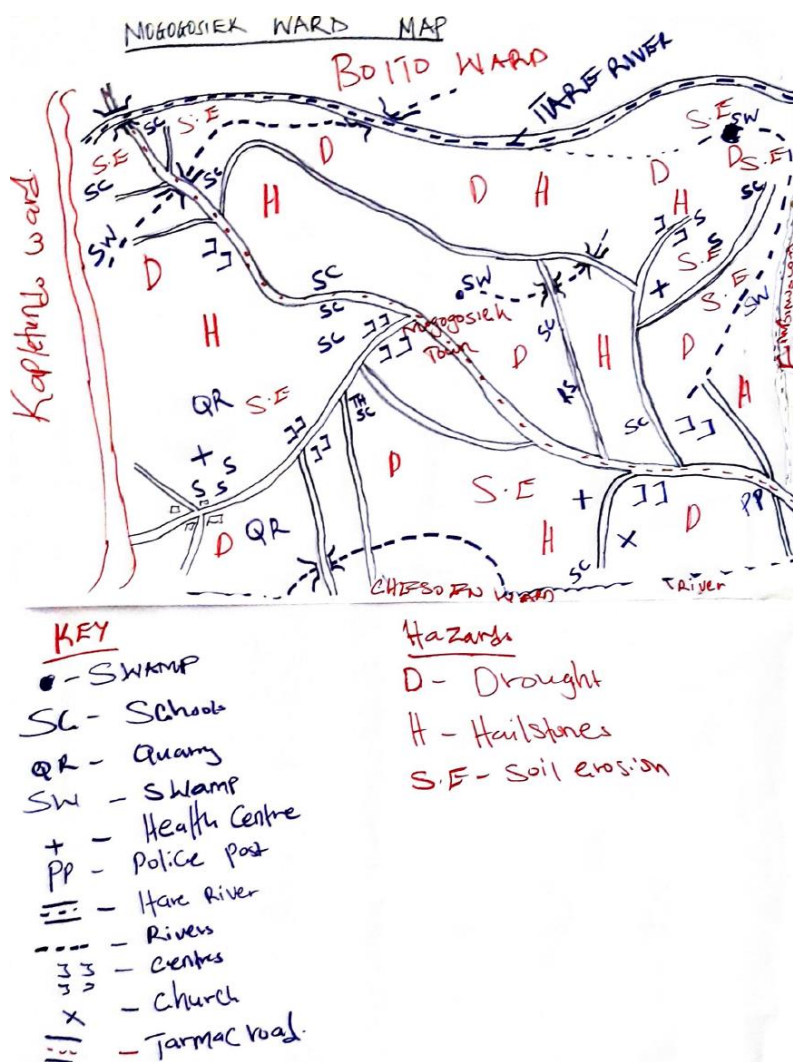 MOGOGOSIEK WARD MAP
BOITO WARD
ITARE RIVER
Kapletundo ward.
S.E
SW
SC
S.E
D
S.E
D
S.E
SC
SC
D
H
D
H
H
SC
SC
S
S
S.E
SW
D
S.E
SW
SC
SW
H
SC
SC
Mogogosiek
Town
SC
D
H
D
QR
S.E
TH
SC
RS
SC
H
S
S
S
D
S.E
D
QR
H
PP
D
SC
CHESOEN WARD
River
KEY
- SWAMP
SC - Schools
QR - Quarry
SW - Swamp
+ - Health Centre
PP - Police Post
- Itare River
- Rivers
- Centres
x - Church
- Tarmac road.
Hazards
D - Drought
H - Hailstones
S.E - Soil erosion